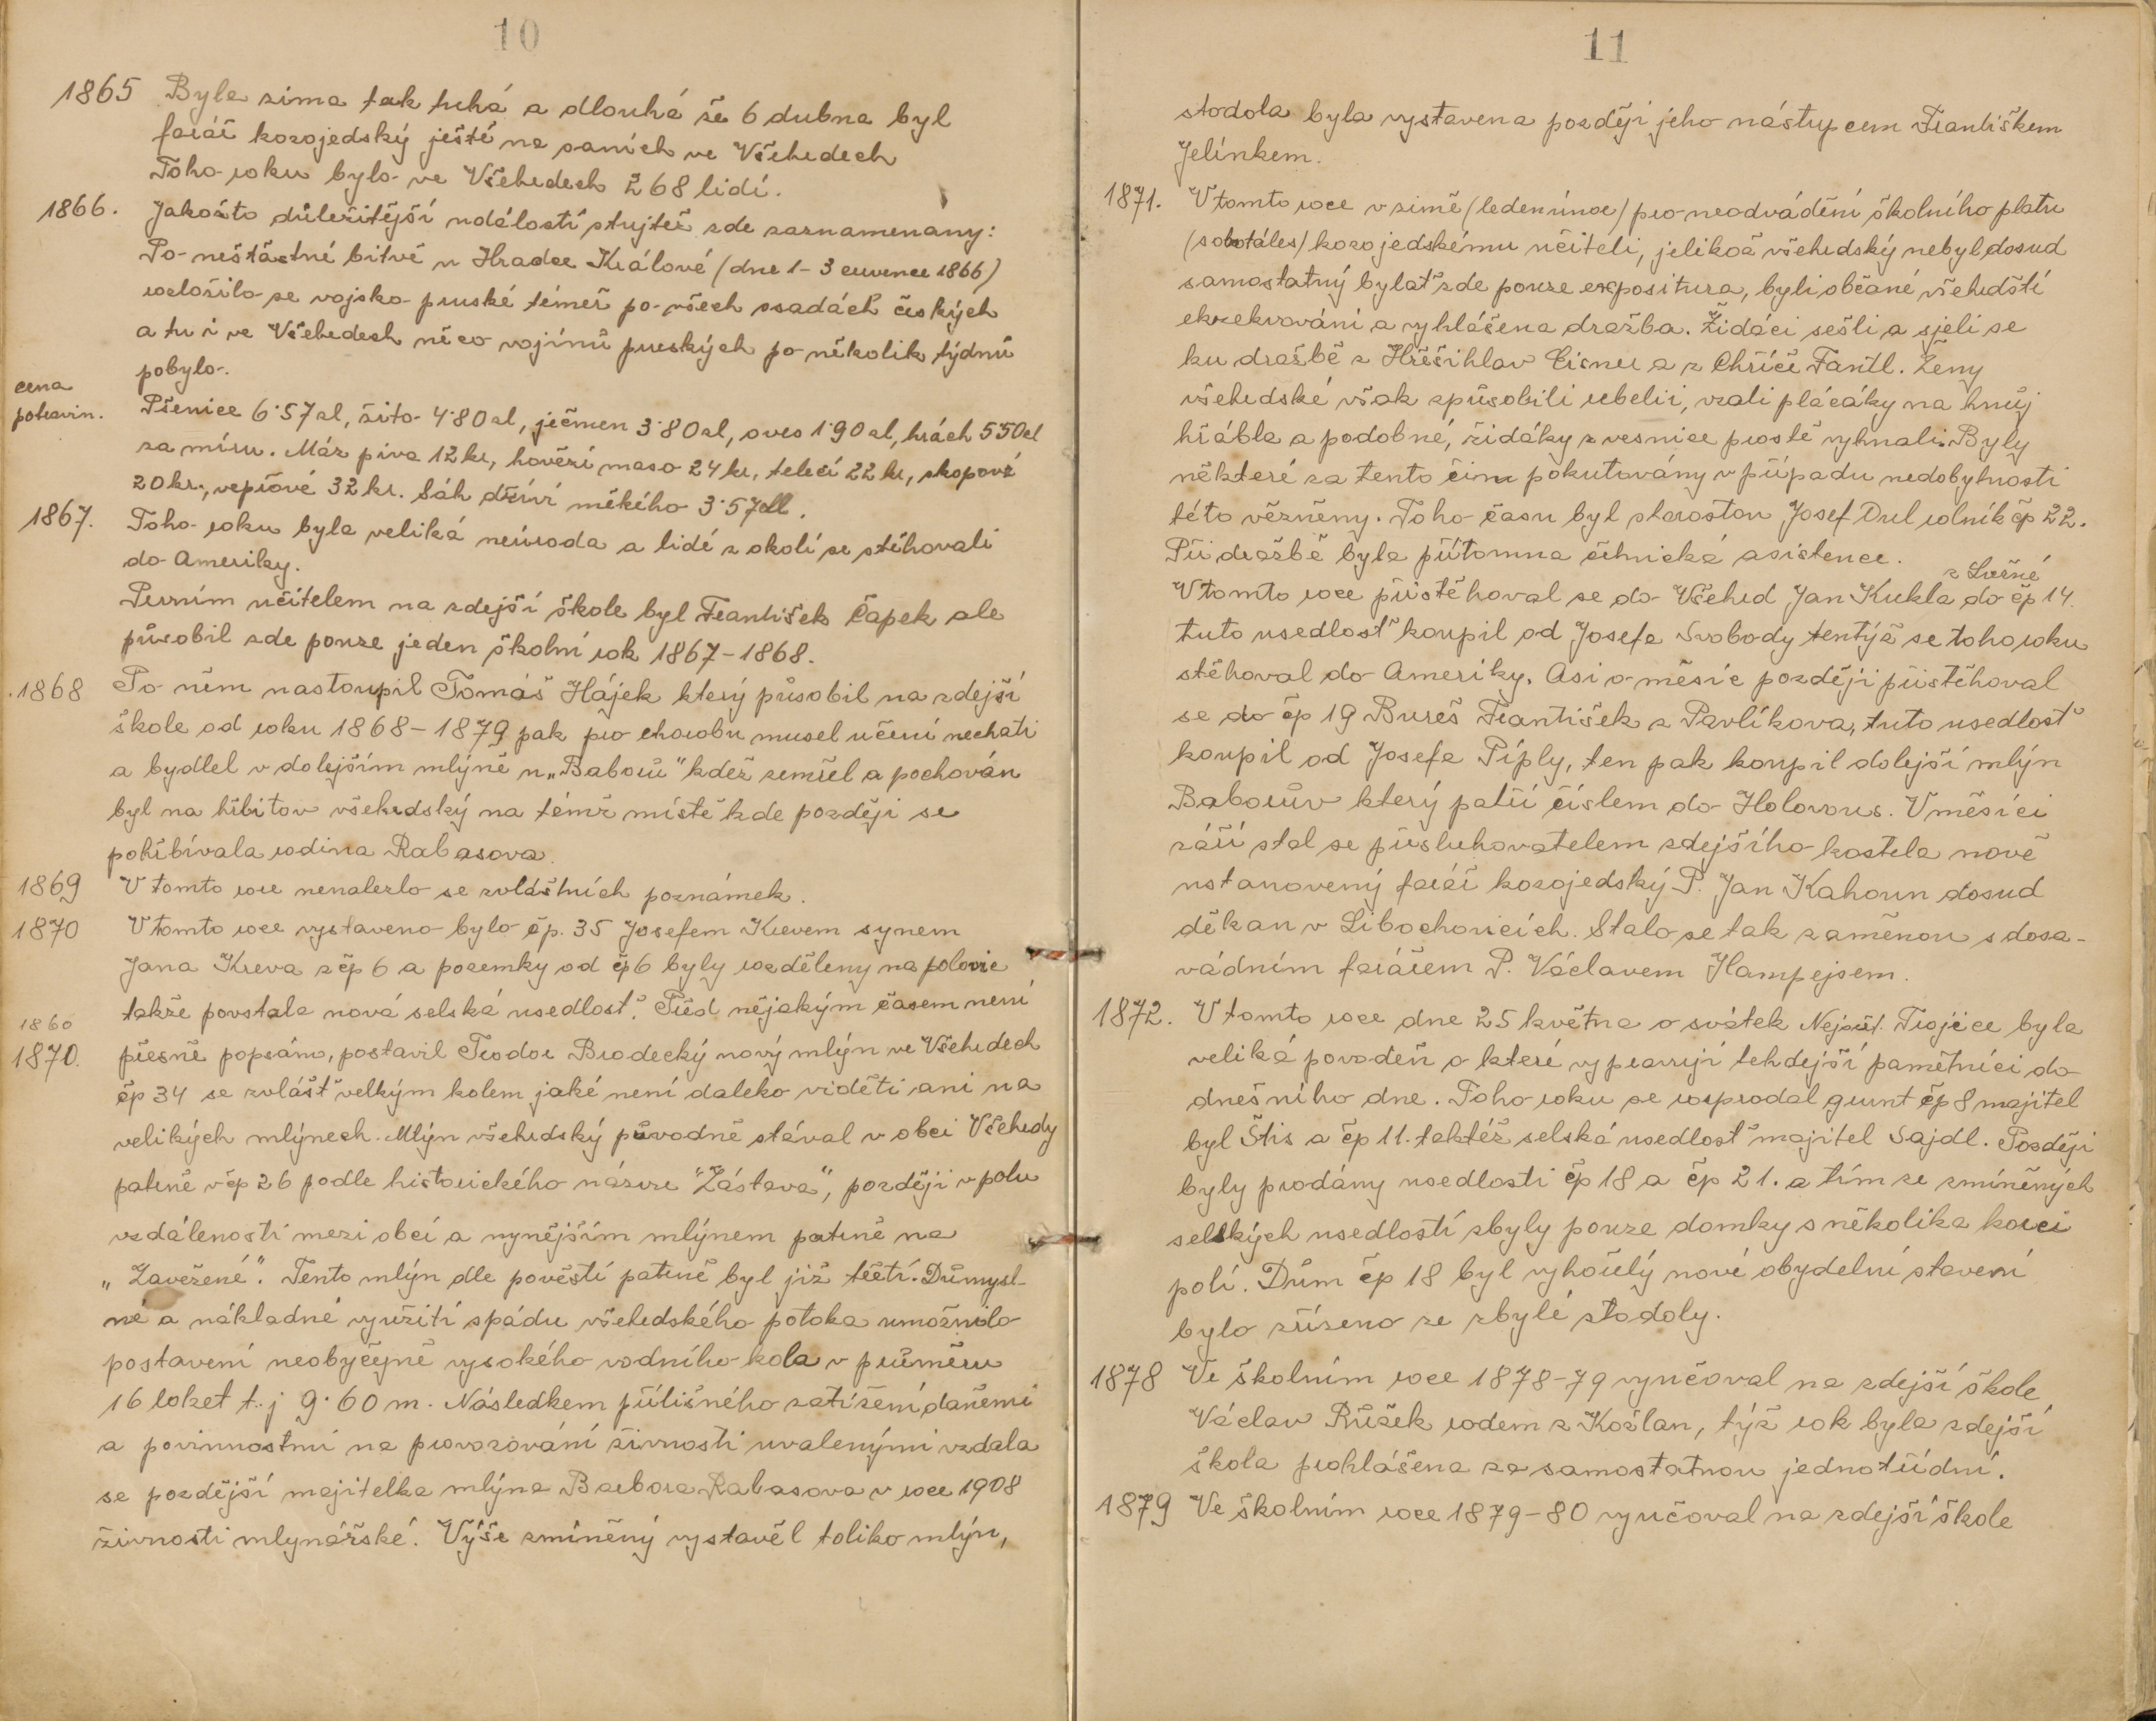 10
1865 Byla zima tak tuhá a dlouhá že 6 dubna byl
farář kozojedský ještě na saních ve Všehrdech
Toho roku bylo ve Všehrdech 268 lidí.
1866. Jakožto důležitější událostí stůjtež zde zaznamenany:
Po nešťastné bitvě u Hradce Králové (dne 1-3 července 1866)
rozložilo se vojsko pruské téměř po všech osadách českých
a tu i ve Všehrdech něco vojínů pruských po několik týdnů
pobylo.
cena
potravin.
Pšenice 6·57 zl, žito 4·80 zl, ječmen 3·80 zl, oves 1·90 zl, hrách 5·50 zl
za míru. Máz piva 12 kr, hovězí maso 24 kr, telecí 22 kr, skopové
20 kr, vepřové 32 kr. Sáh dříví měkého 3·57 zl.
1867. Toho roku byla veliká neúroda a lidé z okolí se stěhovali
do Ameriky.
Prvním učitelem na zdejší škole byl František Čapek ale
působil zde pouze jeden školní rok 1867-1868.
1868 Po něm nastoupil Tomáš Hájek který působil na zdejší
škole od roku 1868-1879 pak pro chorobu musel učení nechati
a bydlel v dolejším mlýně u „Baborů" kdež zemřel a pochován
byl na hřbitov všehrdský na témž místě kde později se
pohřbívala rodina Rabasova.
1869 V tomto roce nenalezlo se zvláštních poznámek.
1870 V tomto roce vystaveno bylo čp. 35 Josefem Krevem synem
Jana Kreva z čp 6 a pozemky od čp 6 byly rozděleny na polovic
takže povstala nová selská usedlosť. Před nějakým časem není
1860
1870. přesně popsáno, postavil Teodor Brodecký nový mlýn ve Všehrdech
čp 34 se zvlášť velkým kolem jaké není daleko viděti ani na
velikých mlýnech. Mlýn všehrdský původně stával v obci Všehrdy
patrně v čp 26 podle historického názvu "Zástava", později v polu
vzdálenosti mezi obcí a nynějším mlýnem patrně na
„Zavežené". Tento mlýn dle pověstí patrně byl již třetí. Důmysl-
né a nákladné využití spádu všehrdského potoka umožnilo
postavení neobyčejně vysokého vodního kola v průměru
16 loket t.j 9·60 m. Následkem přílišného zatížení daněmi
a povinnostmi na provozování živnosti uvalenými vzdala
se pozdější majitelka mlýna Barbora Rabasova v roce 1908
živnosti mlynářské. Výše zmíněný vystavěl toliko mlýn,
11
stodola byla vystavena pozdějí jeho nástupcem Františkem
Jelínkem.
1871. V tomto roce v zimě (leden únor) pro neodvádění školního platu
(sobotáles) kozojedskému učiteli, jelikož všehrdský nebyl dosud
samostatný bylať zde pouze expositura, byli občané všehrdští
exekvováni a vyhlášena dražba. Židáci sešli a sjeli se
ku dražbě z Hřešihlav Eisner a z Chříče Fantl. Ženy
všehrdské však způsobili rebelii, vzali plácáky na hnůj
hřábla a podobné, židáky z vesnice prostě vyhnali. Byly
některé za tento čin pokutovány v případu nedobytnosti
této vězněny. Toho času byl starostou Josef Drel rolník čp 22.
Při dražbě byla přítomna četnická asistence.
z Lečné
V tomto roce přistěhoval se do Všehrd Jan Kukla do čp 14.
tuto usedlosť koupil od Josefa Svobody tentýž se toho roku
stěhoval do Ameriky. Asi o měsíc později přistěhoval
se do čp 19 Bureš František z Pavlíkova, tuto usedlosť
koupil od Josefa Píply, ten pak koupil dolejší mlýn
Baborův který patří číslem do Holovous. V měsíci
září stal se přisluhovatelem zdejšího kostela nově
ustanovený farář kozojedský P. Jan Kahoun dosud
děkan v Libochovicích. Stalo se tak zaměnou s dosa-
vádním farářem P. Václavem Hampejsem.
1872. V tomto roce dne 25 května o svátek Nejsvět. Trojice byla
veliká povodeň o které vypravují tehdejší pamětníci do
dnešního dne. Toho roku se rozprodal grunt čp 8 majitel
byl Štis a čp 11. taktéž selská usedlosť majitel Sajdl. Později
byly prodány usedlosti čp 18 a čp 21. a tím ze zmíněných
selských usedlostí zbyly pouze domky s několika korci
polí. Dům čp 18 byl vyhořelý nové obydelní stavení
bylo zřízeno ze zbylé stodoly.
1878 Ve školním roce 1878-79 vyučoval na zdejší škole
Václav Růžek rodem z Kožlan, týž rok byla zdejší
škola prohlášena za samostatnou jednotřídní.
1879 Ve školním roce 1879-80 vyučoval na zdejší škole